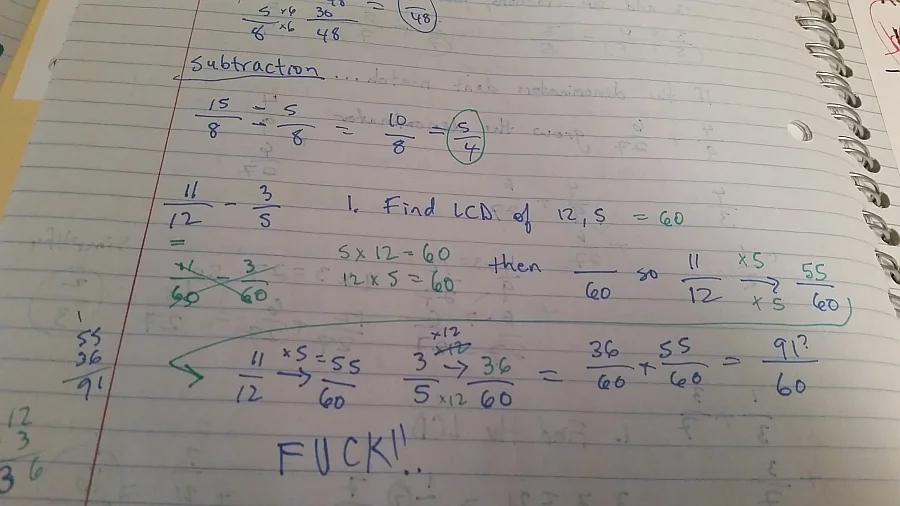 5 x6 36 = 48
8 x6 48
subtraction ....
15/8 - 5/8 = 10/8 = 5/4
11/12 - 3/5 1. Find LCD of 12, 5 = 60
=
11/60 - 3/60 5 x 12 = 60 then /60 so 11/12 x5 → x5 55/60
12 x 5 = 60
1
55
36
91
11/12 x5 → = 55/60 3/5 x12 → x12 36/60 = 36/60 + 55/60 = 91?/60
12
3
36
FUCK!!..